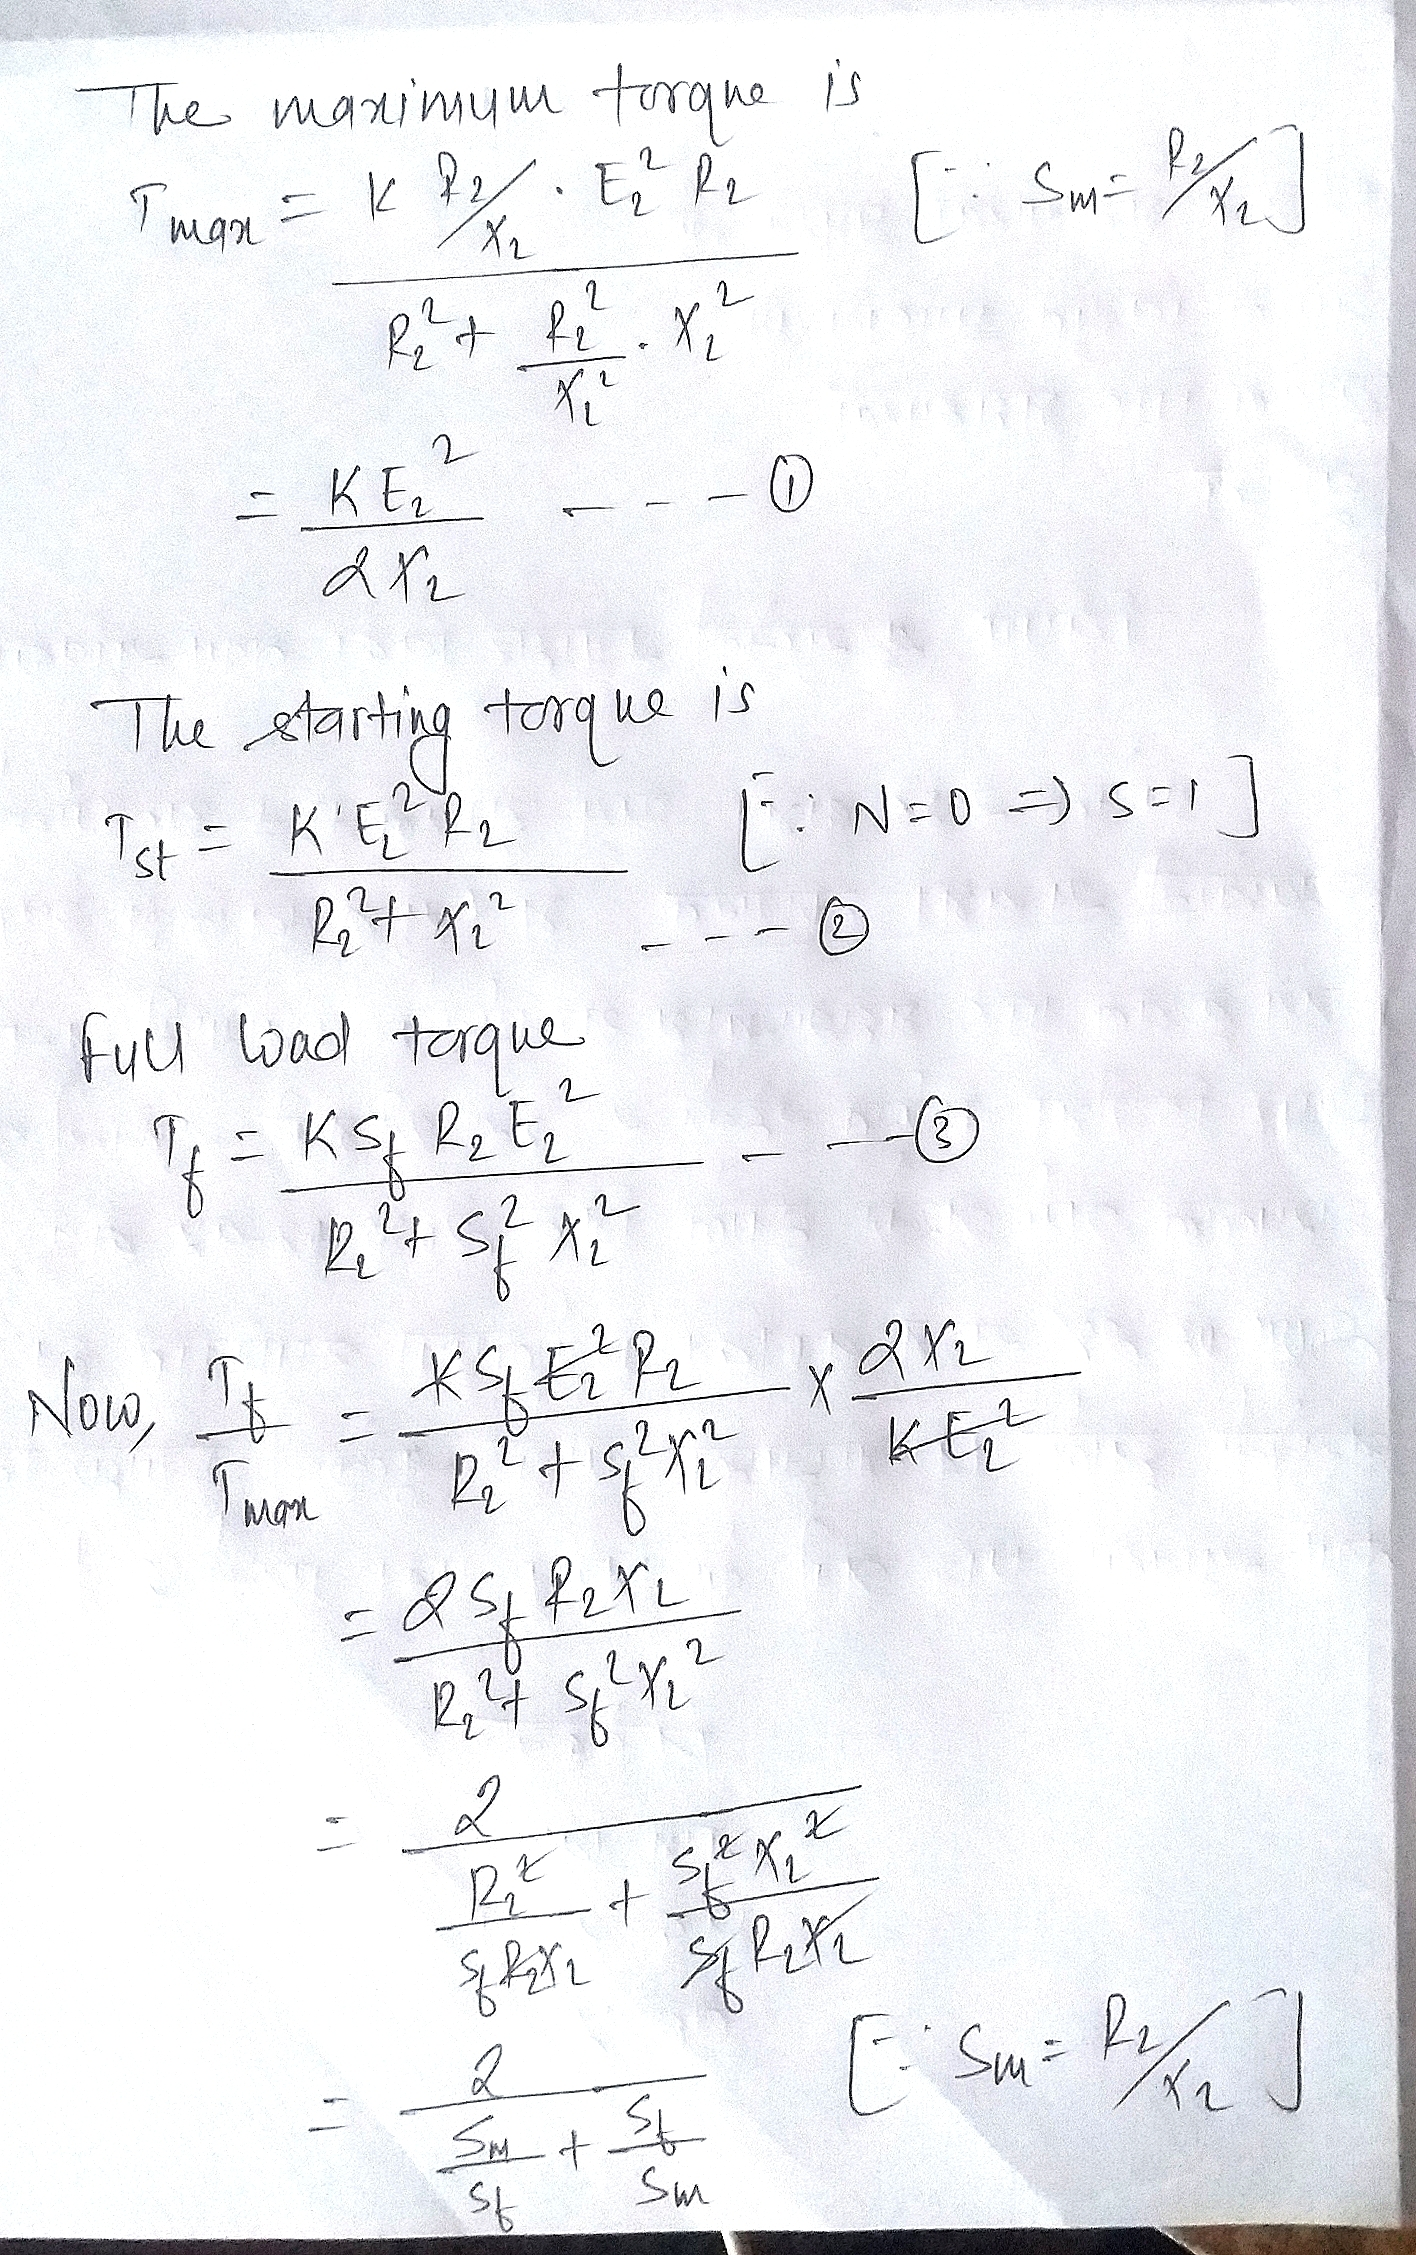 The maximum torque is
T max = K R₂/X₂ . E₂² R₂ / R₂² + R₂²/X₂² . X₂² [∵ Sm = R₂/X₂]
= K E₂² / 2 X₂ - - - ①
The starting torque is
T st = K E₂² R₂ / R₂² + X₂² [∵ N = 0 ⇒ S = 1] - - - ②
Full load torque
T f = K S f R₂ E₂² / R₂² + S f² X₂² - - - ③
Now, T f / T max = K S f E₂² R₂ / R₂² + S f² X₂² × 2 X₂ / K E₂²
= 2 S f R₂ X₂ / R₂² + S f² X₂²
= 2 / R₂² / S f R₂ X₂ + S f² X₂² / S f R₂ X₂
= 2 / Sm / S f + S f / Sm [∵ Sm = R₂/X₂]